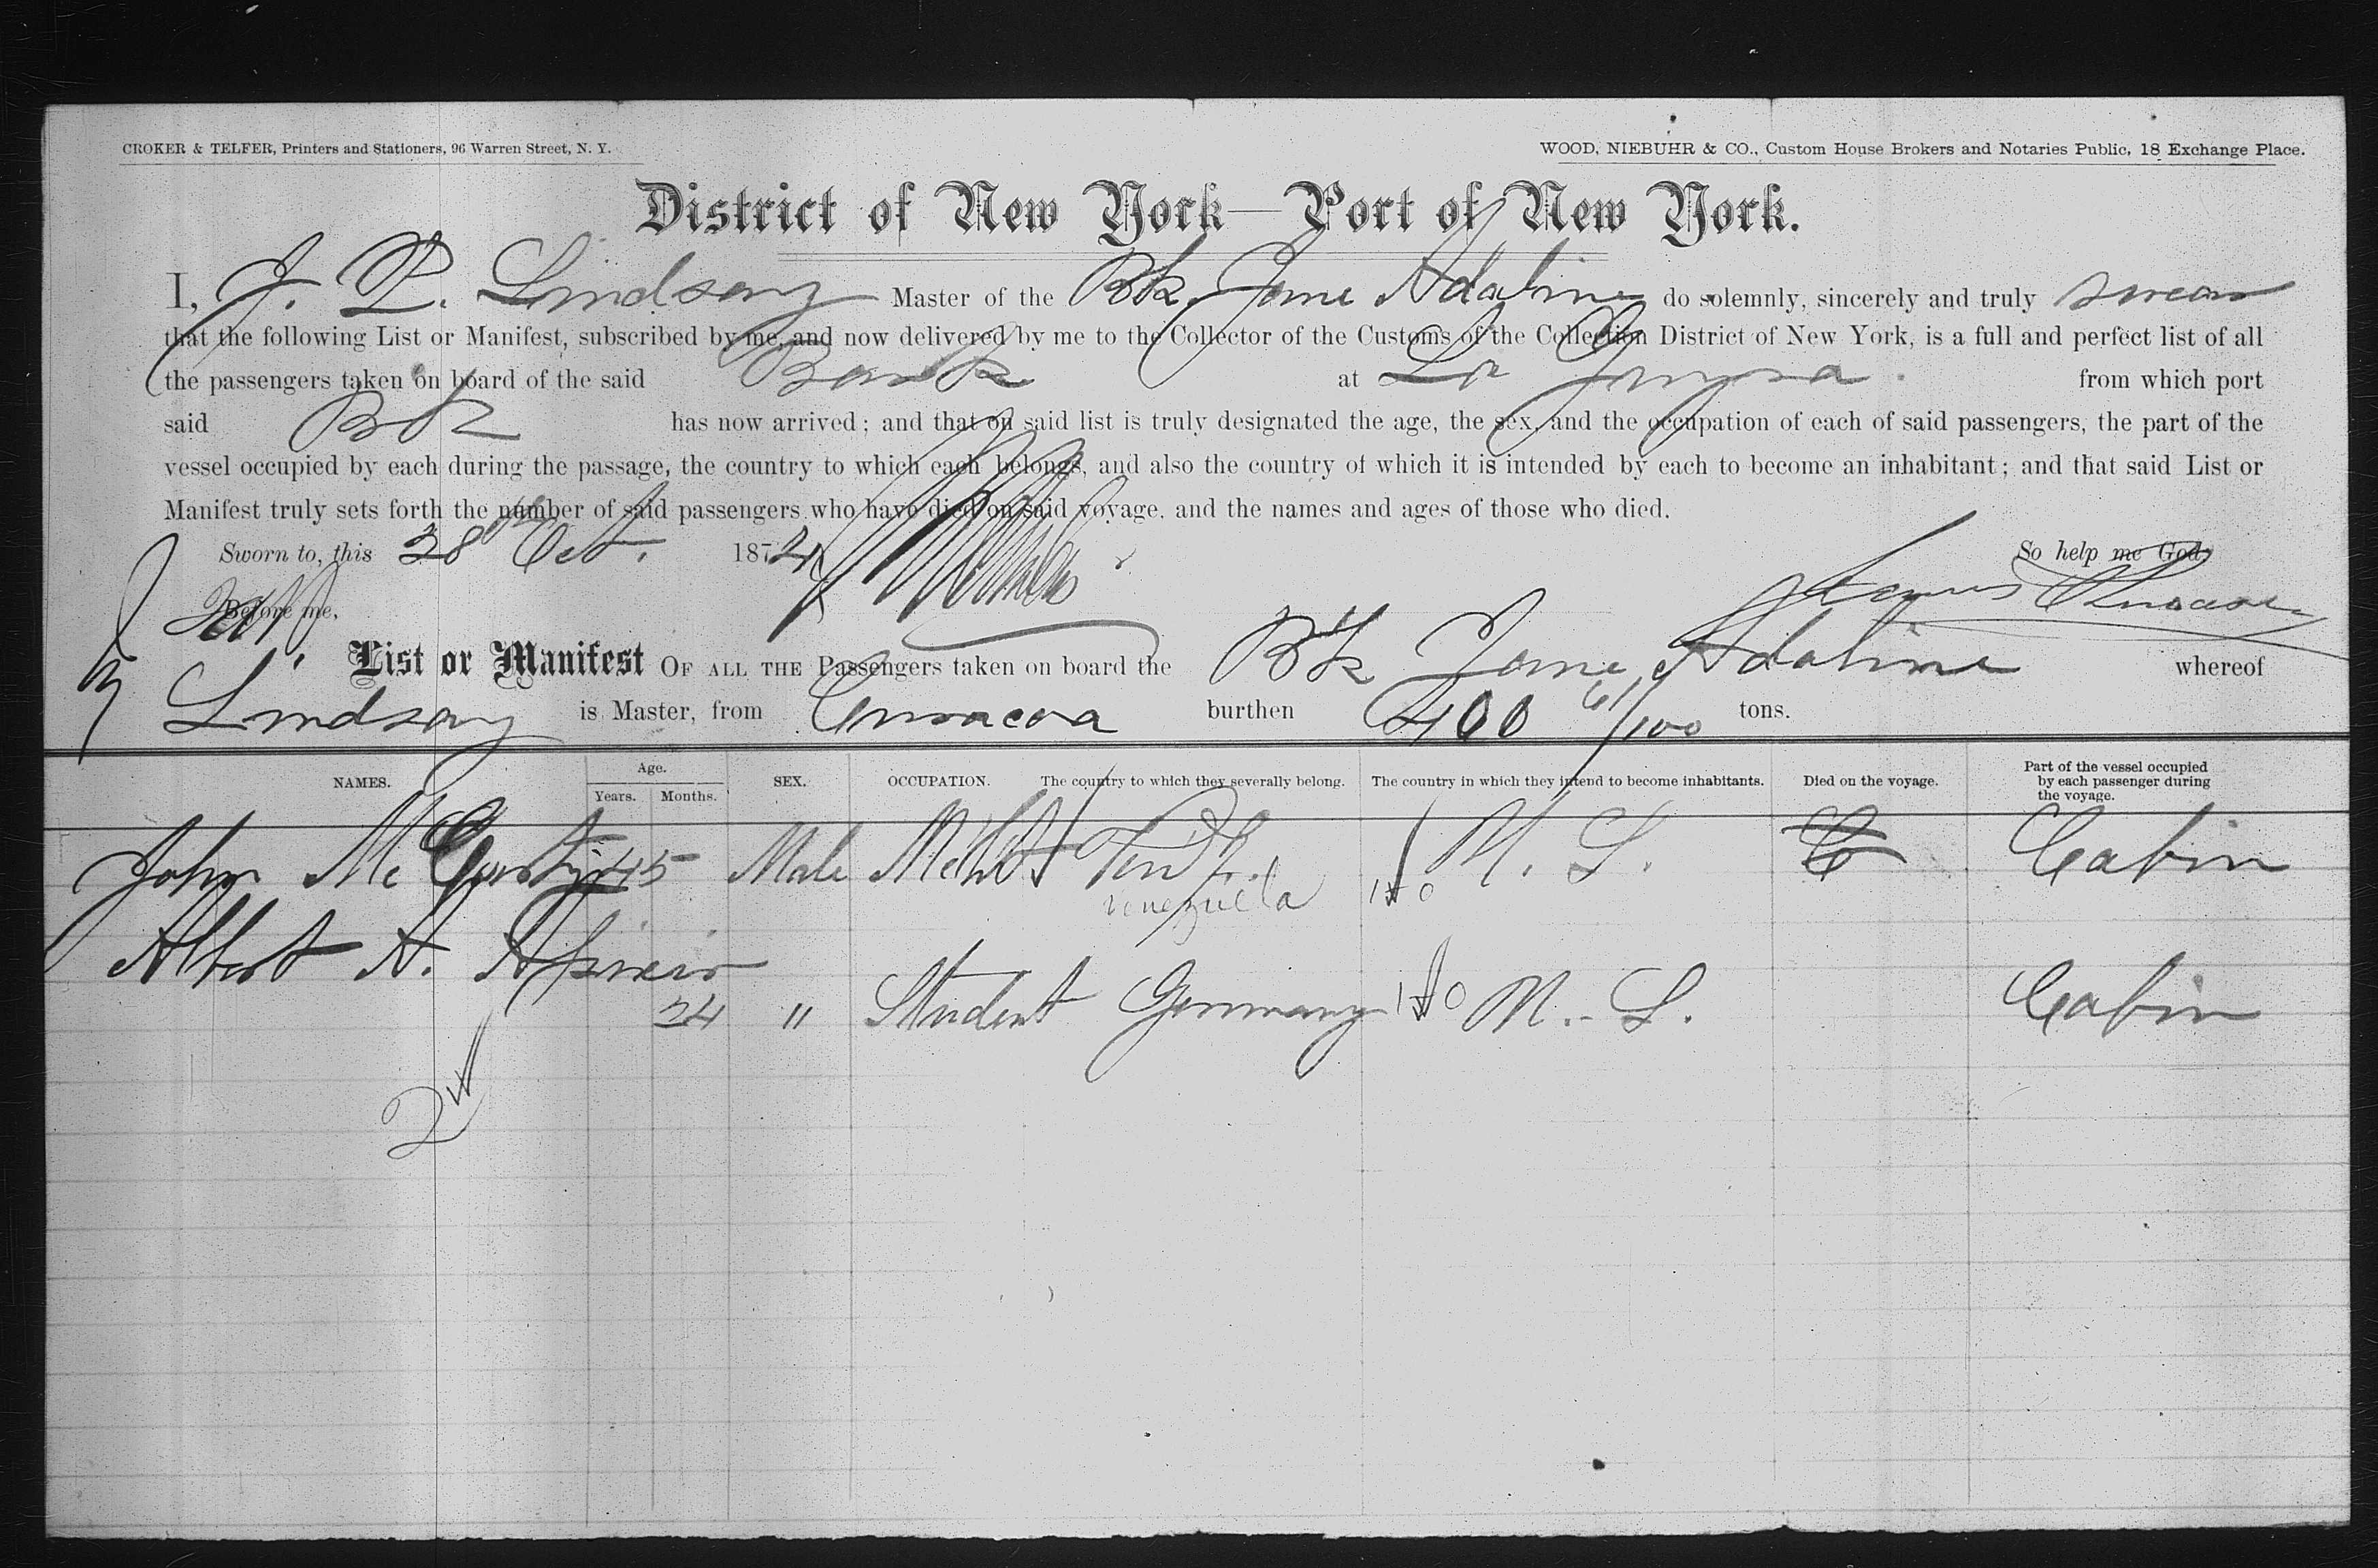 CROKER & TELFER, Printers and Stationers, 96 Warren Street, N. Y.
WOOD, NIEBUHR & CO., Custom House Brokers and Notaries Public, 18 Exchange Place.
District of New York—Port of New York.
I, J. P. Lindsay Master of the Bk. Jane Adaline do solemnly, sincerely and truly swear
that the following List or Manifest, subscribed by me, and now delivered by me to the Collector of the Customs of the Collection District of New York, is a full and perfect list of all
the passengers taken on board of the said Bark at La Guayra from which port
said Bk has now arrived; and that on said list is truly designated the age, the sex, and the occupation of each of said passengers, the part of the
vessel occupied by each during the passage, the country to which each belongs, and also the country of which it is intended by each to become an inhabitant; and that said List or
Manifest truly sets forth the number of said passengers who have died on said voyage, and the names and ages of those who died.
Sworn to, this 28th Oct. 1874
So help me God.
Before me,
List or Manifest OF ALL THE Passengers taken on board the Bk Jane Adaline whereof
Lindsay is Master, from Curacoa burthen 400 61/100 tons.
NAMES. Age. Years. Months. SEX. OCCUPATION. The country to which they severally belong. The country in which they intend to become inhabitants. Died on the voyage. Part of the vessel occupied by each passenger during the voyage.
John Mc 45 Male Mcht Cabin
Venezuela
Albert A.
24 " Student Germany Cabin
2